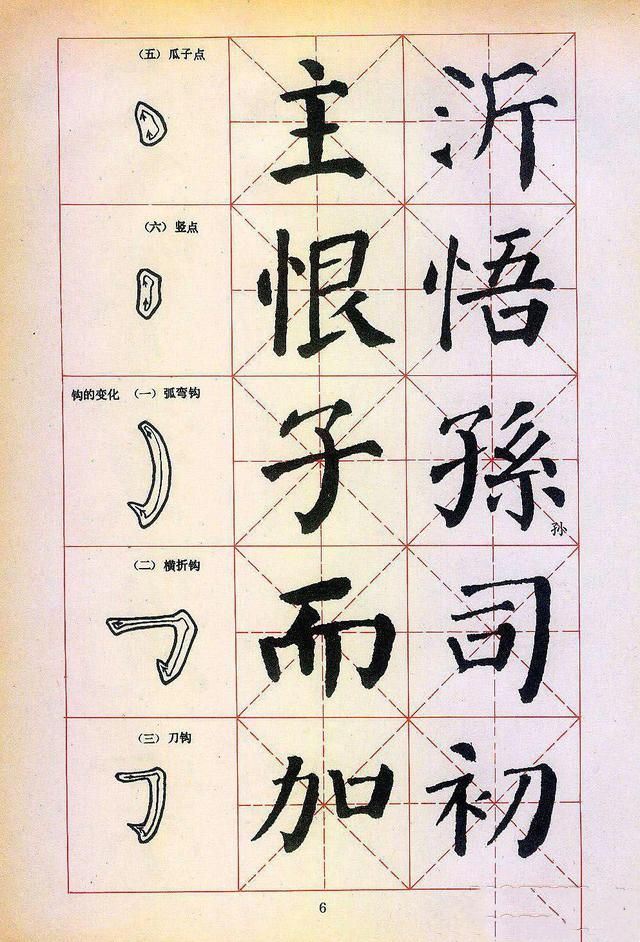 （五）瓜子点
主 沂
（六）竖点
恨 悟
钩的变化 （一）弧弯钩
子 孫
孙
（二）横折钩
而 司
（三）刀钩
加 初
6